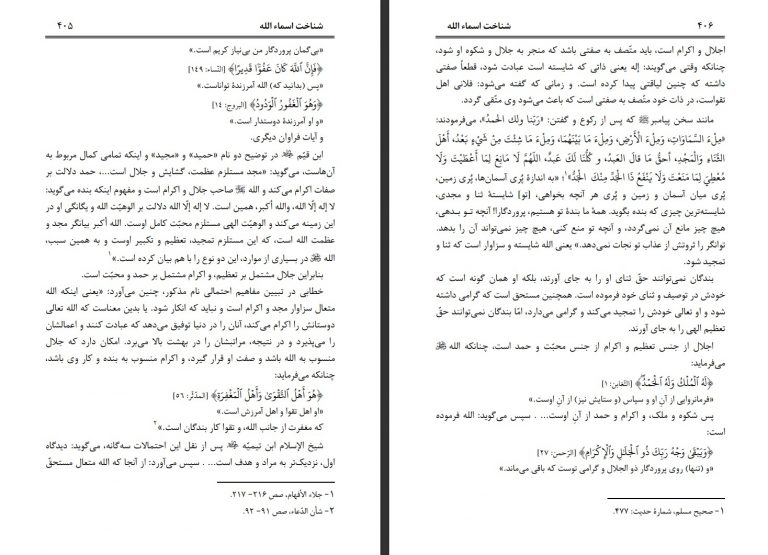 شناخت اسماء الله ۴۰۵
«بی‌گمان پروردگار من بی‌نیاز کریم است.»
﴿فَإِنَّ ٱللَّهَ كَانَ عَفُوّٗا قَدِيرًا﴾ [النّساء: ۱۴۹]
«پس (بدانید که) الله آمرزندۀ تواناست.»
﴿وَهُوَ ٱلۡغَفُورُ ٱلۡوَدُودُ﴾ [البروج: ۱۴]
«و او آمرزندۀ دوستدار است.»
و آیات فراوان دیگری.
ابن قیّم در توضیح دو نام «حمید» و «مجید» و اینکه تمامی کمال مربوط به
آن‌هاست، می‌گوید: «مجد مستلزم عظمت، گشایش و جلال است...، حمد دلالت بر
صفات اکرام می‌کند و الله صاحب جلال و اکرام است و مفهوم اینکه بنده می‌گوید:
لا إله إلّا الله، والله أکبر، همین است. لا إله إلّا الله دلالت بر الوهیّت الله و یگانگی او در
این زمینه می‌کند و الوهیّت الهی مستلزم محبّت کامل اوست. الله أکبر بیانگر مجد و
عظمت الله است، که این مستلزم تمجید، تعظیم و تکبیر اوست و به همین سبب،
الله در بسیاری از موارد، این دو نوع را با هم بیان کرده است.»۱
بنابراین جلال مشتمل بر تعظیم، و اکرام مشتمل بر حمد و محبّت است.
خطابی در تبیین مفاهیم احتمالی نام مذکور، چنین می‌آورد: «یعنی اینکه الله
متعال سزاوار مجد و اکرام است و نباید که انکار شود. یا بدین معناست که الله تعالی
دوستانش را اکرام می‌کند، آنان را در دنیا توفیق می‌دهد که عبادت کنند و اعمالشان
را می‌پذیرد و در نتیجه، مراتبشان را در بهشت بالا می‌برد. امکان دارد که جلال
منسوب به الله باشد و صفت او قرار گیرد، و اکرام منسوب به بنده و کار وی باشد،
چنانکه می‌فرماید:
﴿هُوَ أَهۡلُ ٱلتَّقۡوَىٰ وَأَهۡلُ ٱلۡمَغۡفِرَةِ﴾ [المدّثّر: ۵۶]
«او اهل تقوا و اهل آمرزش است.»
که مغفرت از جانب الله، و تقوا کار بندگان است.»۲
شیخ الإسلام ابن تیمیّه پس از نقل این احتمالات سه‌گانه، می‌گوید: دیدگاه
اول، نزدیک‌تر به مراد و هدف است... . سپس می‌آورد: از آنجا که الله متعال مستحقّ
۱- جلاء الأفهام، صص ۲۱۶- ۲۱۷.
۲- شأن الدّعاء، صص ۹۱- ۹۲.
۴۰۶ شناخت اسماء الله
اجلال و اکرام است، باید متّصف به صفتی باشد که منجر به جلال و شکوه او شود،
چنانکه وقتی می‌گویند: إله یعنی ذاتی که شایسته است عبادت شود، قطعاً صفتی
داشته که چنین لیاقتی پیدا کرده است. و زمانی که گفته می‌شود: فلانی اهل
تقواست، در ذات خود متّصف به صفتی است که باعث می‌شود وی متّقی گردد.
مانند سخن پیامبر ﷺ که پس از رکوع و گفتن: «رَبّنا ولك الحمدُ»، می‌فرمودند:
«مِلءَ السَّمَاوَاتِ، وَمِلءَ الْأَرْضِ، وَمِلءَ مَا بَيْنَهُمَا، وَمِلءَ مَا شِئْتَ مِنْ شَيْءٍ بَعْدُ، أَهْلَ
الثَّنَاءِ وَالْمَجْدِ، أحقُّ مَا قالَ العبدُ، و كُلُّنا لَكَ عبدٌ، اللَّهُمَّ لَا مَانِعَ لِمَا أَعْطَيْتَ وَلَا
مُعْطِيَ لِمَا مَنَعْتَ وَلَا يَنْفَعُ ذَا الْجَدِّ مِنْكَ الْجَدُّ»۱؛ «به اندازۀ پُری آسمان‌ها، پُری زمین،
پُری میان آسمان و زمین و پُری هر آنچه بخواهی، [تو] شایستۀ ثنا و مجدی،
شایسته‌ترین چیزی که بنده بگوید. همۀ ما بندۀ تو هستیم، پروردگار! آنچه تو بدهی،
هیچ چیز مانع آن نمی‌گردد، و آنچه تو منع کنی، هیچ چیز نمی‌تواند آن را بدهد.
توانگر را ثروتش از عذاب تو نجات نمی‌دهد.» یعنی الله شایسته و سزاوار است که ثنا و
تمجید شود.
بندگان نمی‌توانند حقّ ثنای او را به جای آورند، بلکه او همان گونه است که
خودش در توصیف و ثنای خود فرموده است. همچنین مستحق است که گرامی داشته
شود و او تعالی خودش را تمجید می‌کند و گرامی می‌دارد، امّا بندگان نمی‌توانند حقّ
تعظیم الهی را به جای آورند.
اجلال از جنس تعظیم و اکرام از جنس محبّت و حمد است، چنانکه الله
می‌فرماید:
﴿لَهُ ٱلۡمُلۡكُ وَلَهُ ٱلۡحَمۡدُۖ﴾ [التّغابن: ۱]
«فرمانروایی از آنِ او و سپاس (و ستایش نیز) از آنِ اوست.»
پس شکوه و ملک، و اکرام و حمد از آن اوست... . سپس می‌گوید: الله فرموده
است:
﴿وَيَبۡقَىٰ وَجۡهُ رَبِّكَ ذُو ٱلۡجَلَٰلِ وَٱلۡإِكۡرَامِ﴾ [الرّحمن: ۲۷]
«و (تنها) روی پروردگار ذو الجلال و گرامی توست که باقی می‌ماند.»
۱- صحیح مسلم، شمارۀ حدیث: ۴۷۷.